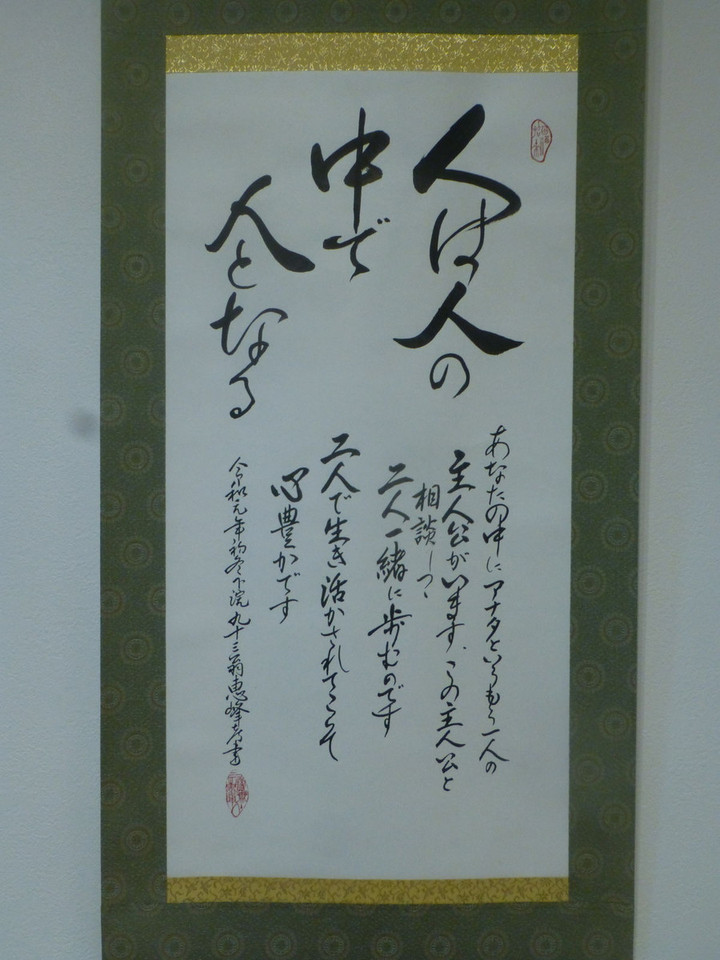 人は人の
中で
人となる
あなたの中にアナタというもう一人の
主人公がいます、この主人公と
相談しつゝ
二人一緒に歩むのです
二人で生き活かされてこそ
心豊かです
令和元年初冬下浣九十三翁恵峰彦書